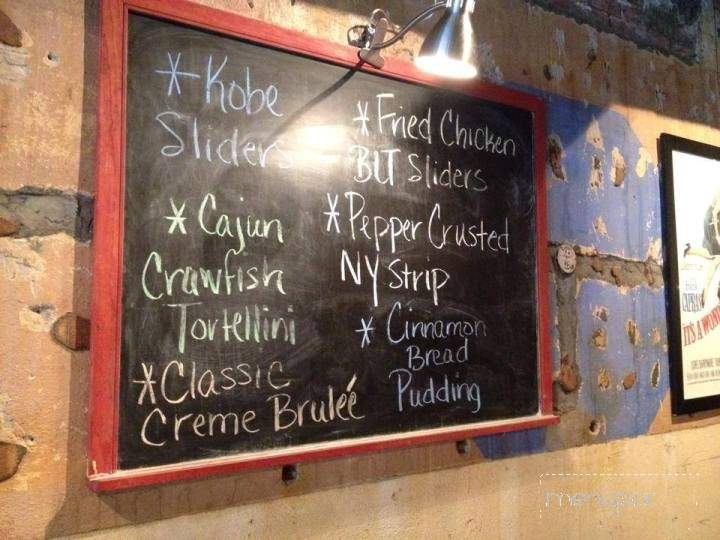 *Kobe
Sliders
*Cajun
Crawfish
Tortellini
*Classic
Creme Bruleé
*Fried Chicken
BLT Sliders
*Pepper Crusted
NY Strip
*Cinnamon
Bread
Pudding
CAPRA'S
IT'S A WON